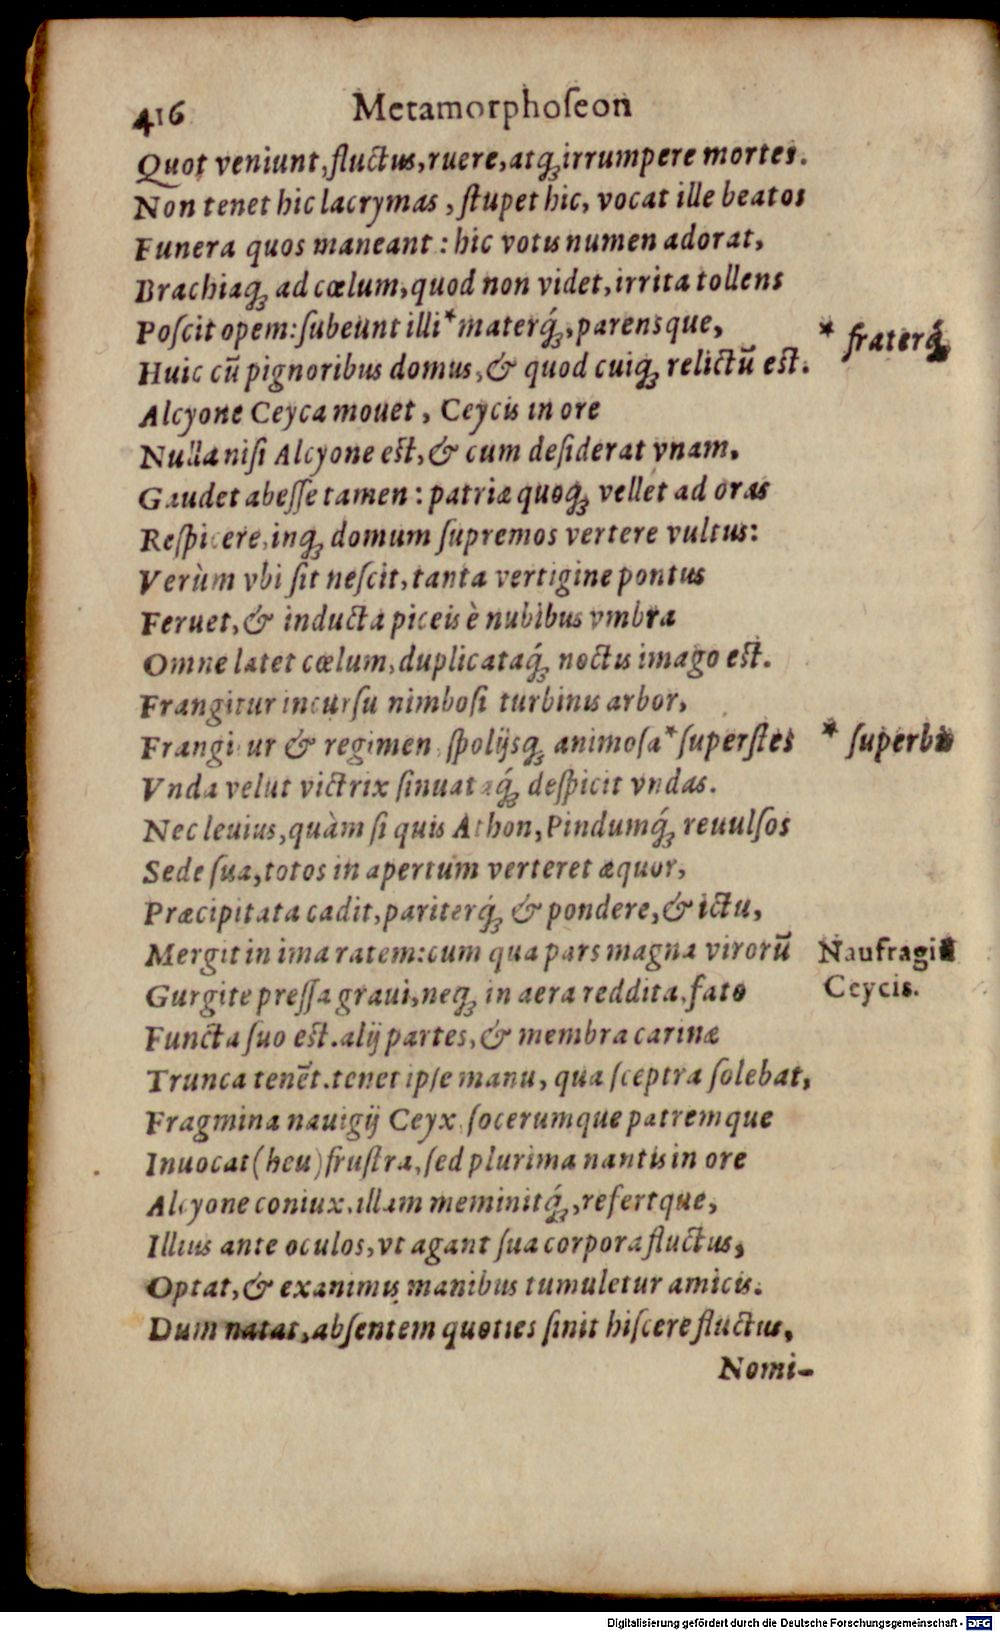 416 Metamorphoſeon
Quot veniunt, fluctus, ruere, atq́; irrumpere mortes.
Non tenet hic lacrymas, ſtupet hic, vocat ille beatos
Funera quos maneant: hic votis numen adorat,
Brachiaq; ad cœlum, quod non videt, irrita tollens
Poſcit opem: ſubeunt illi * materq́;, parensque, * fraterq́;
Huic cū pignoribus domus, & quod cuiq; relictū eſt.
Alcyone Ceyca mouet, Ceycis in ore
Nulla niſi Alcyone eſt, & cum deſiderat vnam,
Gaudet abeſſe tamen: patriæ quoq; vellet ad oras
Reſpicere, inq; domum ſupremos vertere vultus:
Verùm vbi ſit neſcit, tanta vertigine pontus
Feruet, & inducta piceis è nubibus vmbra
Omne latet cœlum, duplicataq́; noctis imago eſt.
Frangitur incurſu nimboſi turbinis arbor,
Frangitur & regimen, ſpolijsq; animoſa * ſuperſtes * ſuperbis
Vnda velut victrix ſinuataq́; deſpicit vndas.
Nec leuius, quàm ſi quis Athon, Pindumq́; reuulſos
Sede ſua, totos in apertum verteret æquor,
Præcipitata cadit, pariterq́; & pondere, & ictu,
Mergit in ima ratem: cum qua pars magna virorū Naufragiū
Gurgite preſſa graui, neq; in aera reddita, fato Ceycis.
Functa ſuo eſt. alij partes, & membra carinæ
Trunca tenēt. tenet ipſe manu, qua ſceptra ſolebat,
Fragmina nauigij Ceyx, ſocerumque patremque
Inuocat (heu) fruſtra, ſed plurima nantis in ore
Alcyone coniux. illam meminitq́;, refertque,
Illius ante oculos, vt agant ſua corpora fluctus,
Optat, & exanimis manibus tumuletur amicis.
Dum natat, abſentem quoties ſinit hiſcere fluctus,
Nomi-
Digitalisierung gefördert durch die Deutsche Forschungsgemeinschaft - DFG